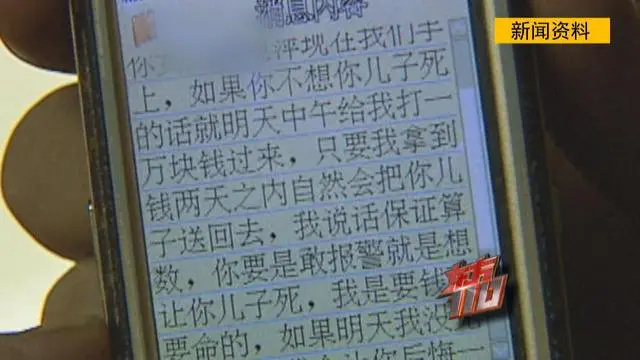 新闻资料
消息内容
评现在我们手
上，如果你不想你儿子死
的话就明天中午给我打一
万块钱过来，只要我拿到
钱两天之内自然会把你儿
子送回去，我说话保证算
数，你要是敢报警就是想
让你儿子死，我是要钱
要命的，如果明天我没
110